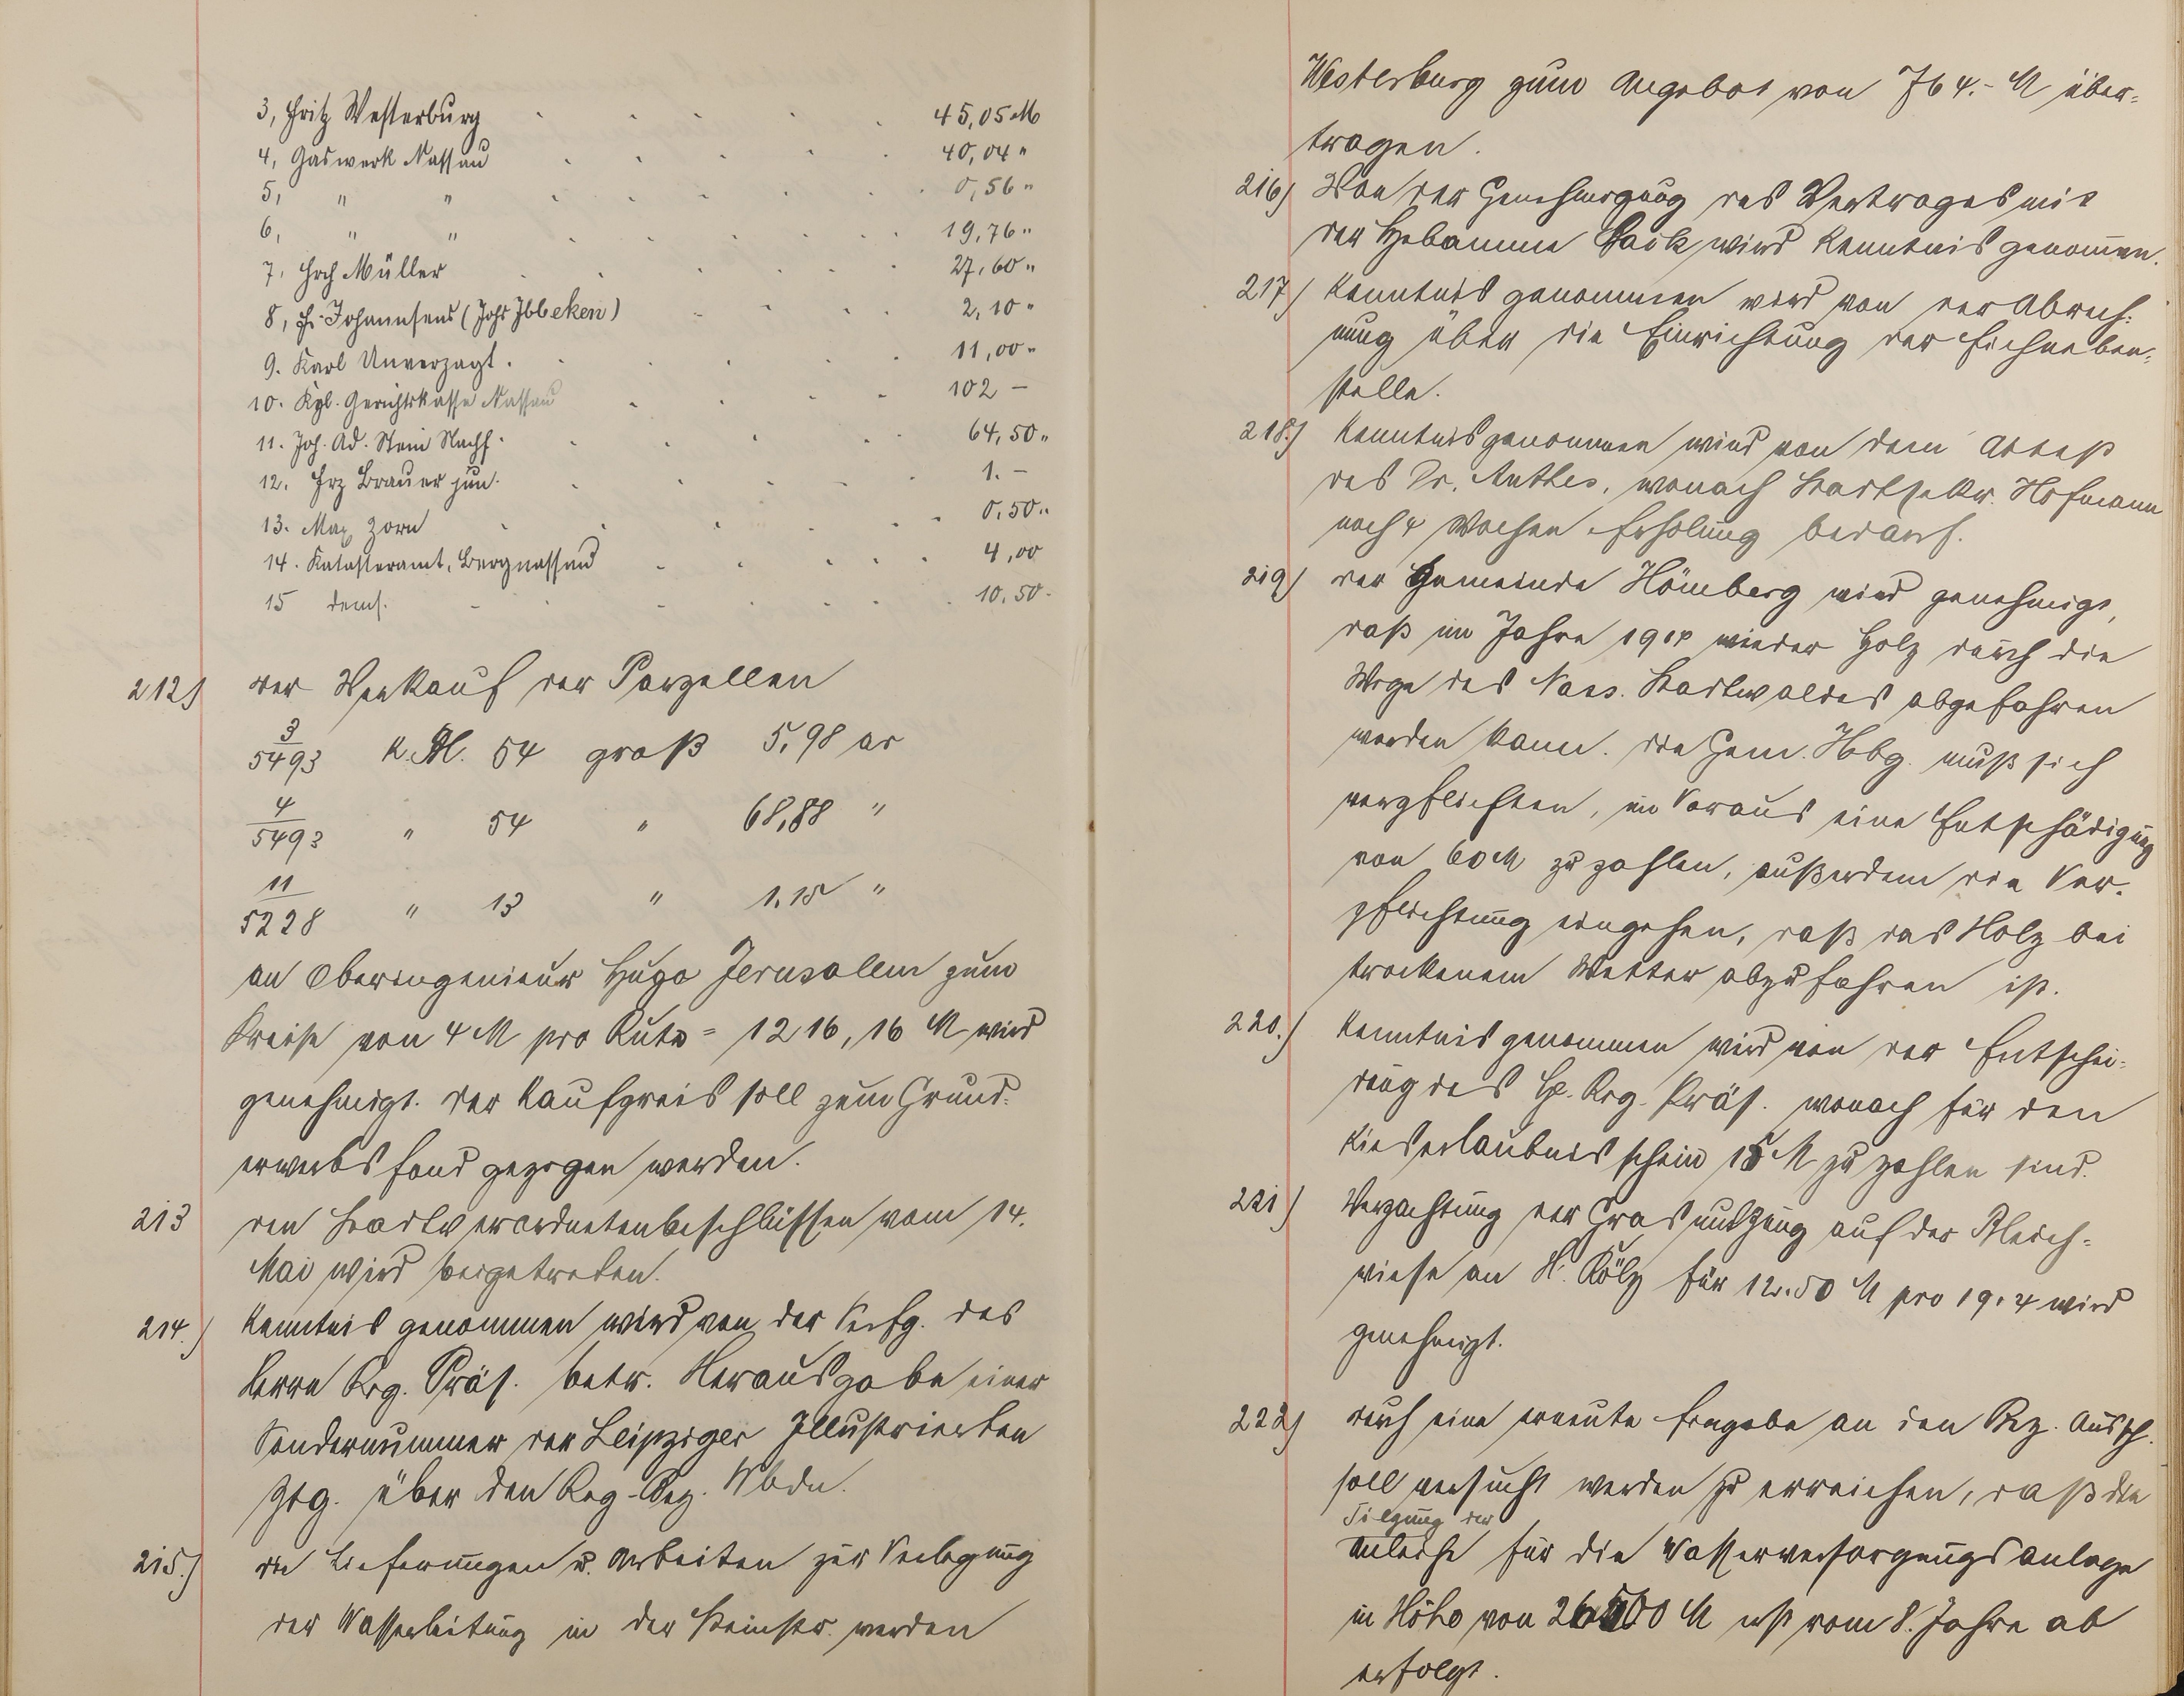 3, Fritz Westerburg . . . . . 45,05 M
4, Gaswerk Nassau . . . . . 40,04 "
5, " " . . . . . 0,56 "
6, " " . . . . . 19,76 "
7. Hrch Müller . . . . . 27,60 "
8, Fr. Johannsens (Johs Ibbeken) . . . . 2,10 "
9. Karl Unverzagt . . . . 11,00 "
10. Kgl. Gerichtskasse Nassau . . . . 102 –
11. Joh. Ad. Stein Nachf. . . . . 64,50 "
12. Frz Brauer jun. . . . . 1. –
13. Max Zorn . . . . . 0,50 "
14. Katasteramt, Bergnassau . . . . . 4,00
15 dems. . . . . . 10,50 -
212) der Verkauf der Parzellen
3/5493 K. Bl. 54 groß 5,98 ar
4/5493 " 54 " 68,88 "
11/5228 " 13 " 1,18 "
an Oberingenieur Hugo Jerusalem zum
Preise von 4 M pro Rute = 1216,16 M wird
genehmigt. der Kaufpreis soll zum Grund-
erwerbsfond gezogen werden.
213 den Stadtverordnetenbeschlüssen vom 14.
Mai wird beigetreten.
214.) Kenntnis genommen wird von der Verfg. des
Herrn Rg. Präs. betr. Herausgabe einer
Sondernummer der Leipziger Illustrierten
Ztg. über den Reg-Bez. Wbdn.
215.) die Lieferungen u. Arbeiten zur Verlegung
der Wasserleitung in der Steinstr. werden
Westerburg zum Angebot von 764.- M über-
tragen.
216) Von der Genehmigung des Vertrages mit
der Hebamme Sack wird Kenntnis genommen.
217) Kenntnis genommen wird von der Abrech-
nung über die Einrichtung der Eichneben-
stelle.
218.) Kenntnis genommen wird von dem Attest
des Dr. Anthes, wonach Stadtsekr. Hofmann
noch 4 Wochen Erholung bedarf.
219) der Gemeinde Hömberg wird genehmigt,
daß im Jahre 1914 wieder Holz durch die
Wege des Nass. Stadtwaldes abgefahren
werden kann. die Gem. Hbg. muß sich
verpflichten, im Voraus eine Entschädigung
von 60 M zu zahlen, außerdem die Ver-
pflichtung eingehen, daß das Holz bei
trockenem Wetter abzufahren ist.
220.) Kenntnis genommen wird von der Entschei-
dung des H. Rg. Präs. wonach für den
Kieserlaubnisschein 15 M zu zahlen sind.
221) Verpachtung der Grasnutzung auf der Bleich-
wiese an H. Kölz für 12.50 M pro 1914 wird
genehmigt.
222) durch eine erneute Eingabe an den Bez. Aussch.
soll versucht werden zu erreichen, daß die
Tilgung der
Anleihe für die Wasserversorgungsanlage
in Höhe von 26500 M erst vom 8. Jahre ab
erfolgt.